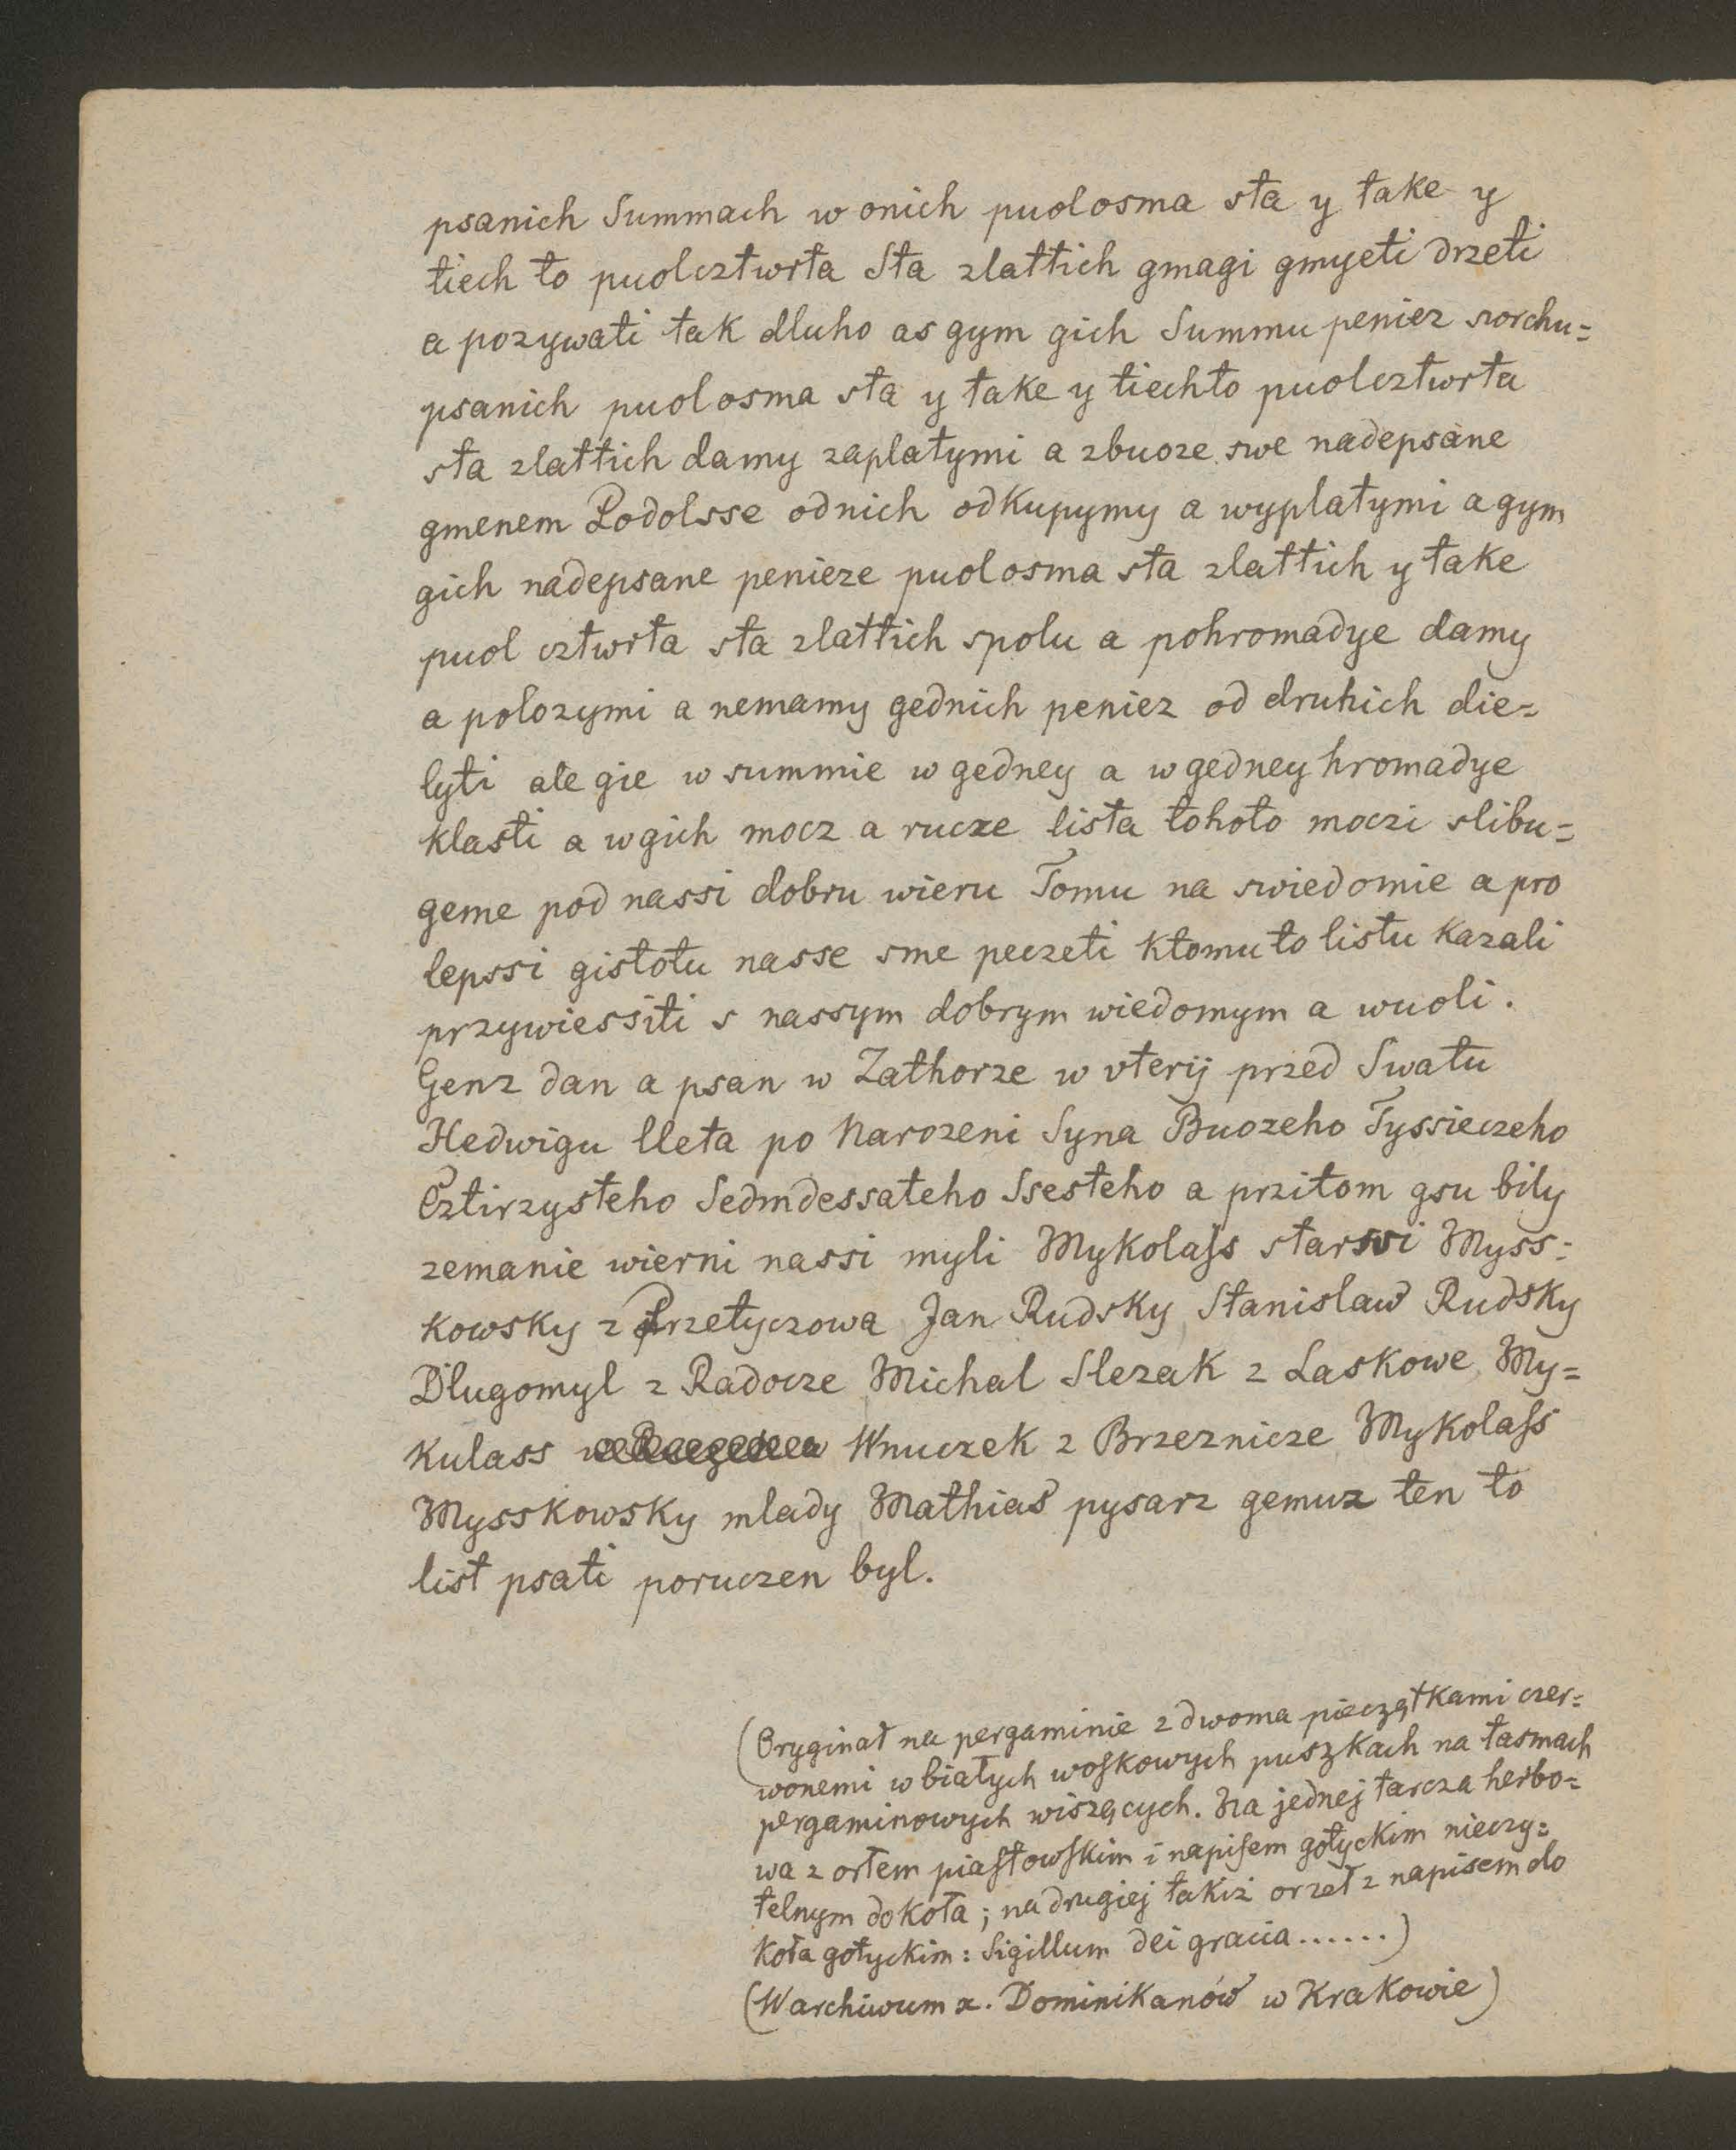 psanich Summach w onich puolosma sta y take y
tiech to puolcztwrta Sta zlattich gmagi gmyeti drzeti
a pozywati tak dluho as gym gich Summu peniez swrchu=
psanich puolosma sta y take y tiechto puolcztwrta
sta zlattich damy zaplatymi a zbuoze swe nadepsane
gmenem Podolsse odnich odkupymy a wyplatymi a gym
gich nadepsane penieze puolosma sta zlattich y take
puol cztwrta sta zlattich spolu a pohromadye damy
a polozymi a nemamy gednich peniez od druhich die=
lyti ale gie w summie w gedney a w gedney hromadye
klasti a w gich mocz a rucze lista tohoto moczi slibu=
geme pod nassi dobru wieru Tomu na swiedomie a pro
lepssi gistotu nasse sme peczeti ktomuto listu kazali
przywiessiti s nassym dobrym wiedomym a wuoli.
Genz dan a psan w Zathorze w vterij przed Swatu
Hedwigu lleta po Narozeni Syna Buozeho Tyssieczeho
Cztirzysteho Sedmdessateho Ssesteho a przitom gsu bily
zemanie wierni nassi myli Mykolaſs starssi Myss=
kowsky z Przetyczowa Jan Rudsky Stanislaw Rudsky
Dlugomyl z Radocze Michal Slezak z Laskowe My=
kulass Wnuczek z Brzeznicze Mykolaſs
Mysskowsky mlady Mathias pysarz gemuz ten to
list psati poruczen byl.
(Oryginał na pergaminie z dwoma pieczątkami czer=
wonemi w białych woſkowych puszkach na tasmach
pergaminowych wiszących. Na jednej tarcza herbo=
wa z orłem piaſtowſkim i napiſem gotyckim nieczy=
telnym dokoła; na drugiej takiż orzeł z napisem do
koła gotyckim: Sigillum dei gracia......)
(W archiwum x. Dominikanów w Krakowie)